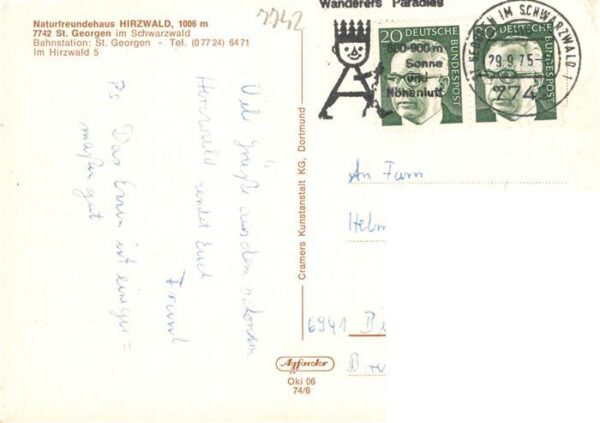 Naturfreundehaus HIRZWALD, 1006 m
7742 St. Georgen im Schwarzwald
Bahnstation: St. Georgen - Tel. (0 77 24) 64 71
Im Hirzwald 5
7742
Wanderers Paradies
800-900 m
Sonne
und
Höhenluft
GEORGEN IM SCHWARZWALD 1
29.9.75
774
20 DEUTSCHE BUNDESPOST
20 DEUTSCHE BUNDESPOST
Viel Grüße aus dem schönen
Hirzwald sendet Euch
Ps Das Essen ist einiger=
maßen gut
Cramers Kunstanstalt KG, Dortmund
An Fam
Helm
6941 Bi
Bre
Agfacolor
Oki 06
74/6